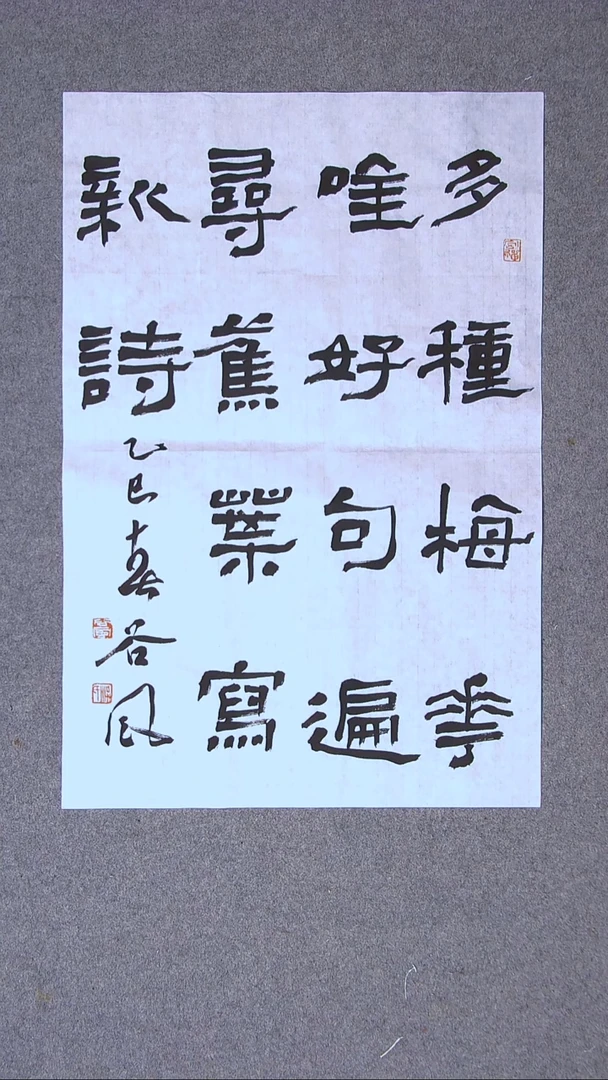 多種梅華
唯好句遍
尋蕉葉寫
新詩
乙巳春谷風